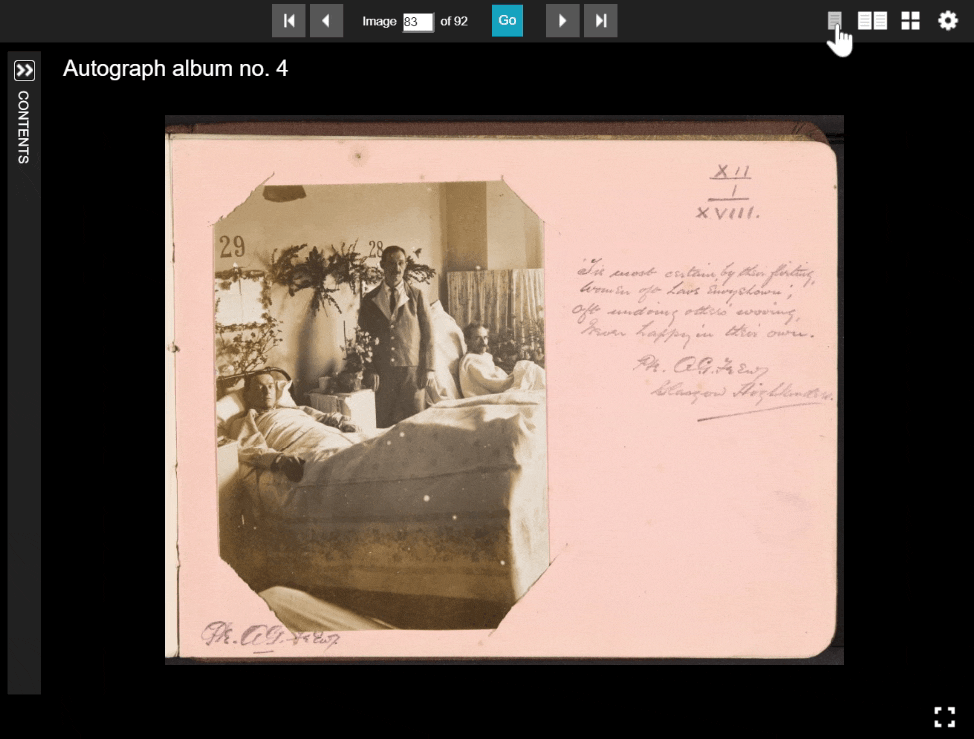 Image 83 of 92 Go
CONTENTS
Autograph album no. 4
XII
1
XVIII.
29
28
'Tis most certain by their flirting,
Women oft have envy shown;
Oft undoing others' wooing,
Never happy in their own.
Pte. A.G. Frew
Glasgow Highlanders.
Pte. A.G. Frew